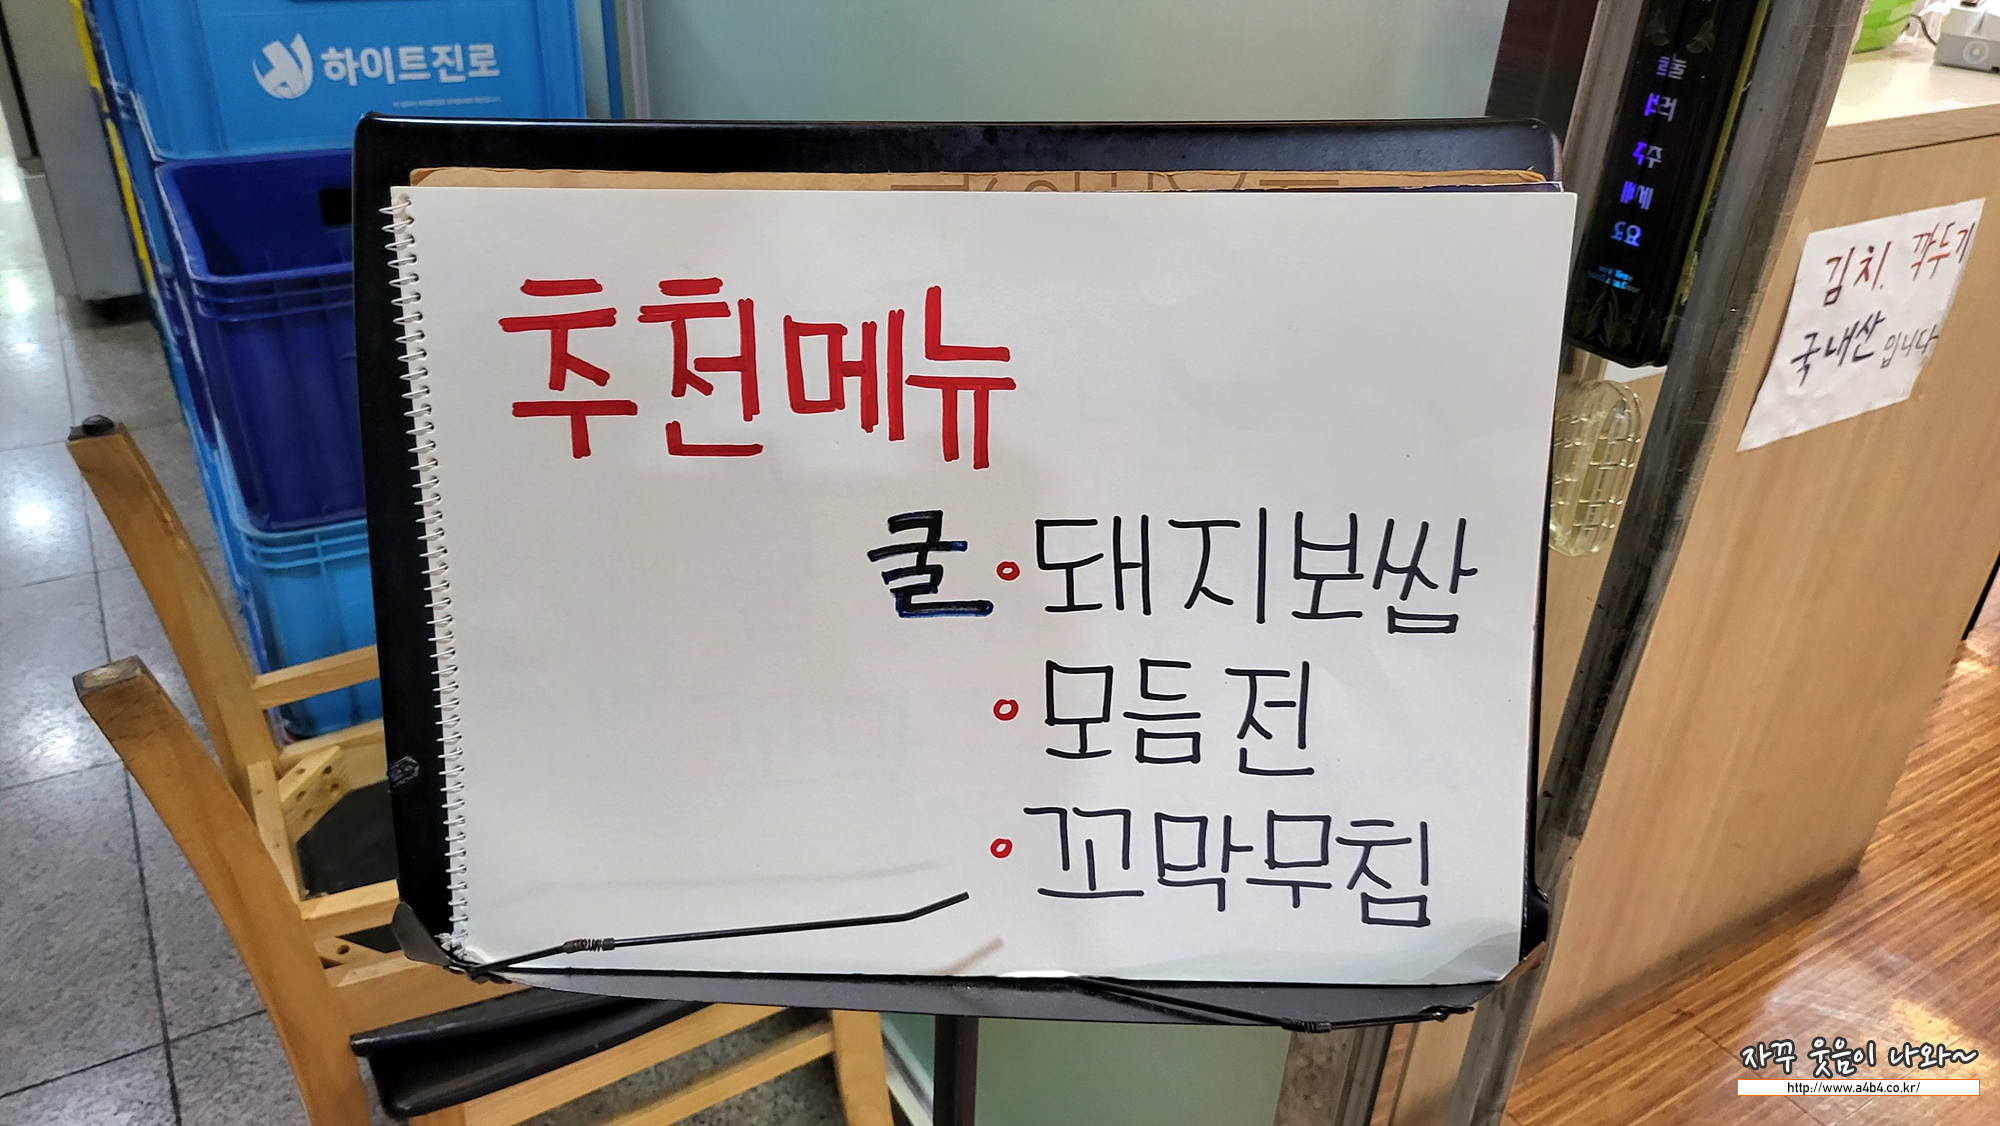 하이트진로
추천메뉴
굴 ∘ 돼지보쌈
∘ 모듬전
∘ 꼬막무침
김치. 깍두기
국내산 입니다
자꾸 웃음이 나와~
http://www.a4b4.co.kr/